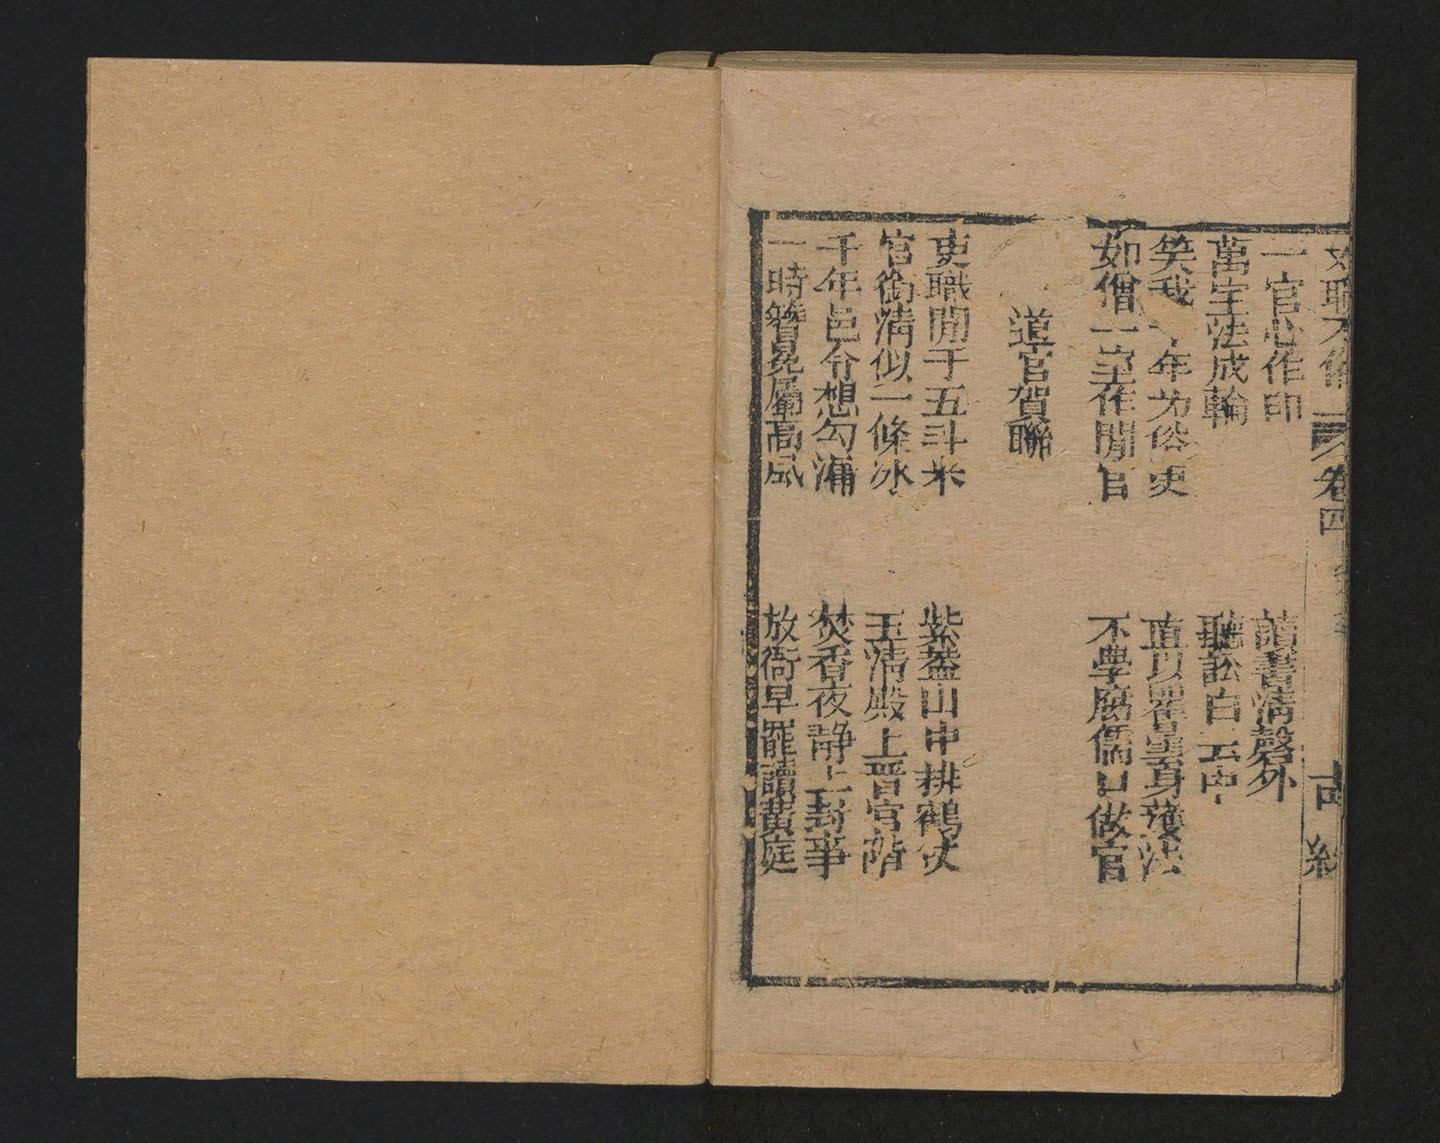 卷四
一官心作印　讀書清磬外
萬字法成輪　聽訟白云中
笑我十年为俗吏　直以瞿曇身護法
如僧一室作閒官　不學腐儒口做官
道官賀聯
吏職閒于五斗米　紫蓋山中排鶴仗
官銜清似一條冰　玉清殿上晋官階
千年邑令想勾漏　焚香夜静上封事
一時簪冕屬高風　放衙早罷讀黄庭